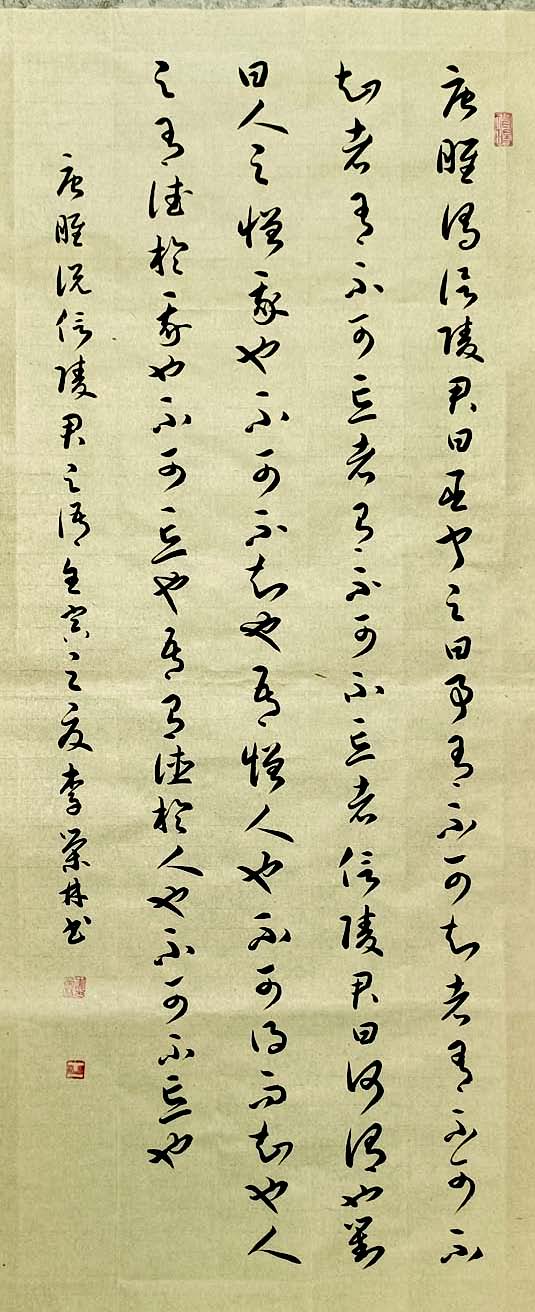 唐雎謂信陵君曰臣聞之曰事有不可知者有不可不
知者有不可忘者有不可不忘者信陵君曰何謂也對
曰人之憎我也不可不知也吾憎人也不可得而知也人
之有德於我也不可忘也吾有德於人也不可不忘也
唐雎说信陵君之語壬寅之夏李荣林书